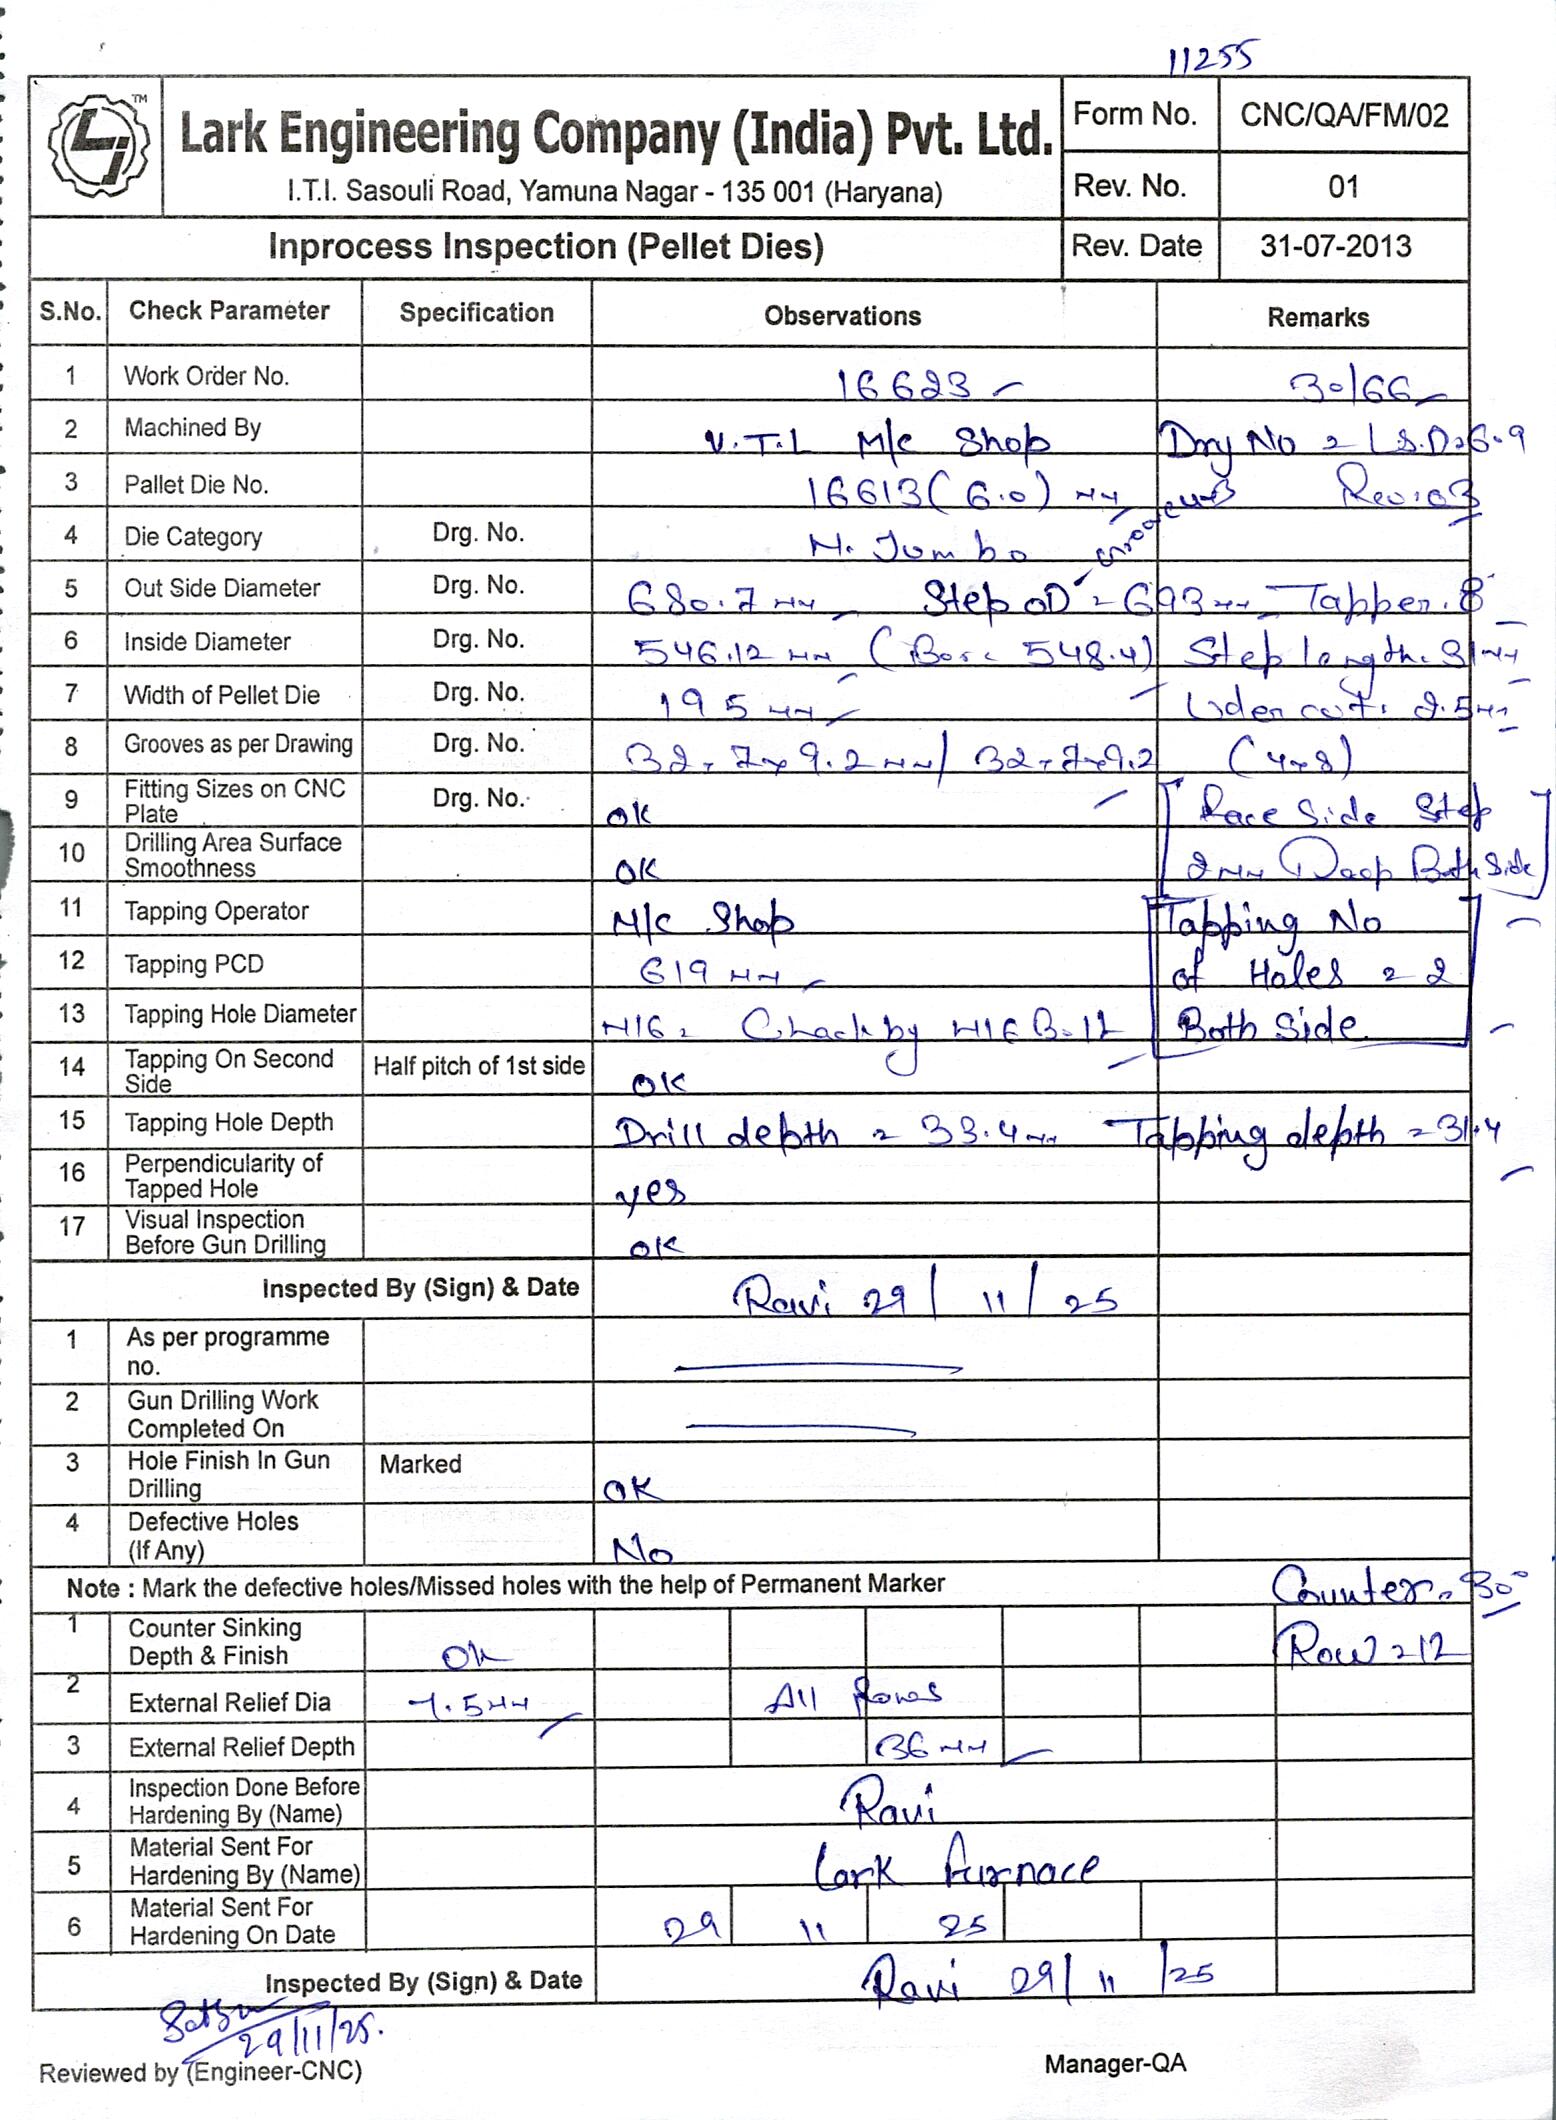 11255
TM
Lark Engineering Company (India) Pvt. Ltd.
Form No. CNC/QA/FM/02
I.T.I. Sasouli Road, Yamuna Nagar - 135 001 (Haryana)
Rev. No. 01
Inprocess Inspection (Pellet Dies)
Rev. Date 31-07-2013
S.No. Check Parameter Specification Observations Remarks
1 Work Order No. 16623 30/66
2 Machined By V.T.L M/c Shop
3 Pallet Die No. 16613(6.0)
4 Die Category Drg. No. M. Jumbo
5 Out Side Diameter Drg. No. 680.7 mm Step OD = 693 mm Tapper. 8°
6 Inside Diameter Drg. No. 546.12 mm (Bore 548.4) Step length. 31 mm
7 Width of Pellet Die Drg. No. 195 mm
8 Grooves as per Drawing Drg. No. (4x8)
9 Fitting Sizes on CNC Plate Drg. No. OK Race Side Step
10 Drilling Area Surface Smoothness OK 2mm Deep Both Side
11 Tapping Operator M/c Shop Tapping No
12 Tapping PCD 619 mm of Holes = 2
13 Tapping Hole Diameter M16 Both Side
14 Tapping On Second Side Half pitch of 1st side OK
15 Tapping Hole Depth Drill depth = 33.4 mm Tapping depth = 31.4
16 Perpendicularity of Tapped Hole yes
17 Visual Inspection Before Gun Drilling OK
Inspected By (Sign) & Date Ravi 29/11/25
1 As per programme no.
2 Gun Drilling Work Completed On
3 Hole Finish In Gun Drilling Marked OK
4 Defective Holes (If Any) No
Note : Mark the defective holes/Missed holes with the help of Permanent Marker Counter. 30°
1 Counter Sinking Depth & Finish OK Row = 12
2 External Relief Dia 7.5mm All Rows
3 External Relief Depth 36 mm
4 Inspection Done Before Hardening By (Name) Ravi
5 Material Sent For Hardening By (Name) Lark Furnace
6 Material Sent For Hardening On Date 29 11 25
Inspected By (Sign) & Date Ravi 29/11/25
29/11/25.
Reviewed by (Engineer-CNC)
Manager-QA